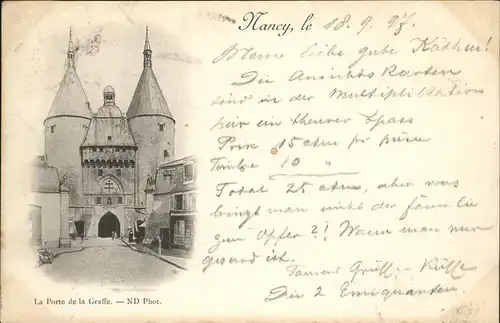 Nancy, le 18. 9. 97.
Meine liebe gute Käthen!
Die Ansichts Karten
sind in der Multiplikation
hier ein theurer Spass
Prix 15 ctm pr pièce
Timbre 10 "
Total 25 ctm, aber was
bringt man nicht der Familie
zum Opfer?! Wenn man nur
gesund ist.
Gruss - Küsse
Die 2 Emigranten.
La Porte de la Graffe. — ND Phot.